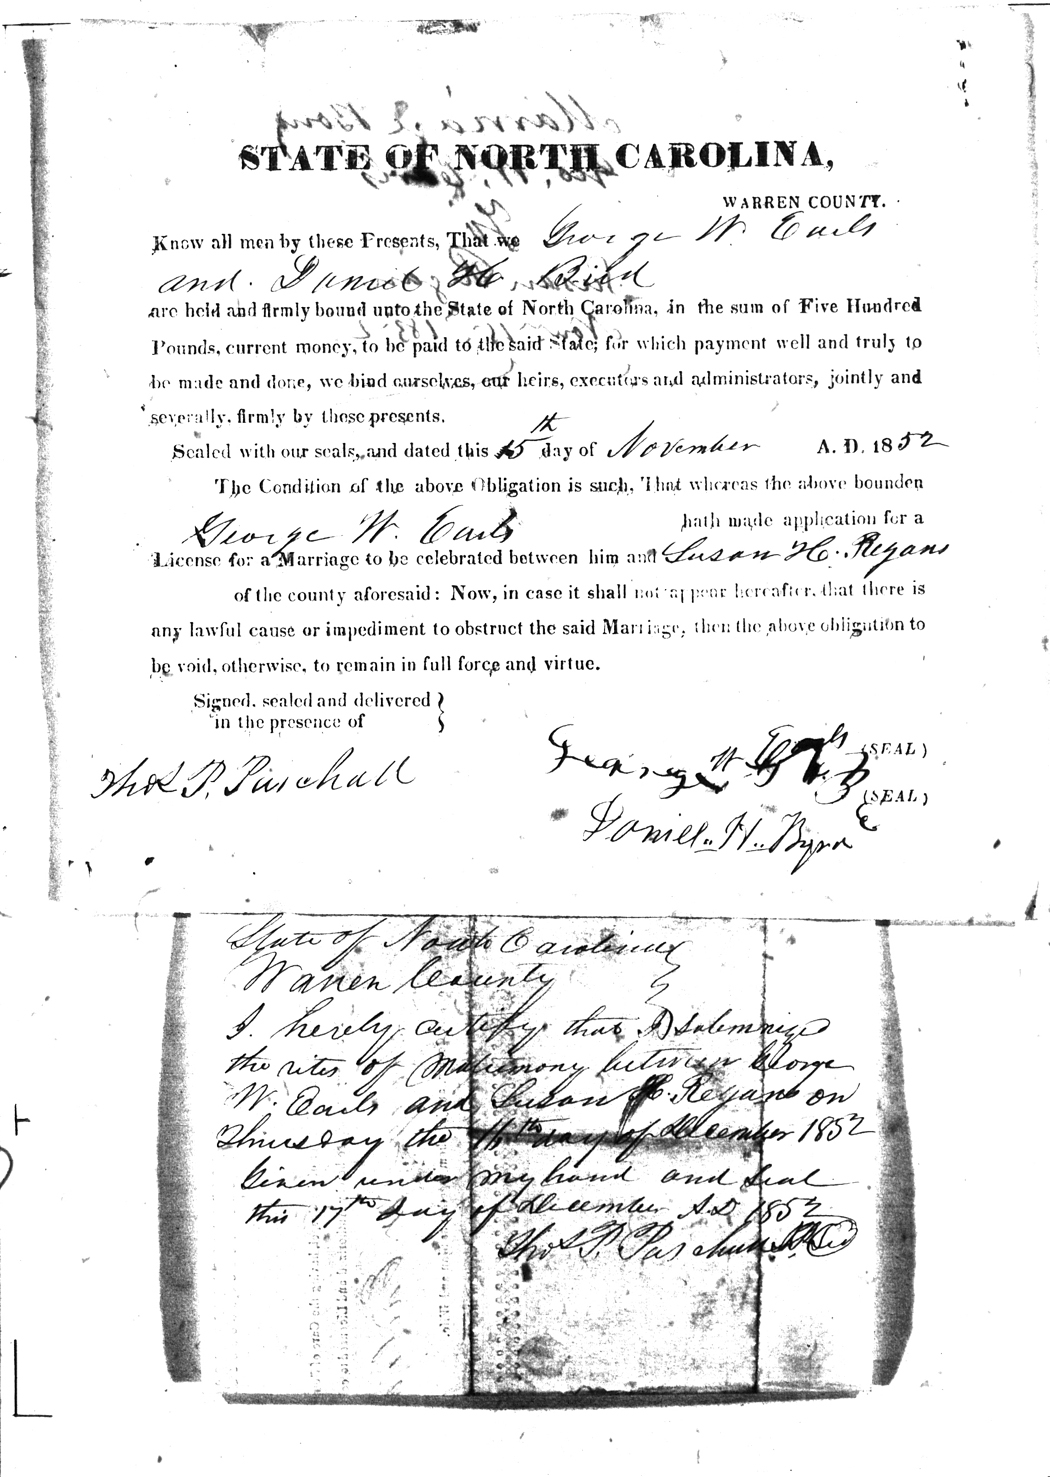 STATE OF NORTH CAROLINA,
WARREN COUNTY.
Know all men by these Presents, That we George W. Earls
and. Daniel H. Bird
are held and firmly bound unto the State of North Carolina, in the sum of Five Hundred
Pounds, current money, to be paid to the said State; for which payment well and truly to
be made and done, we bind ourselves, our heirs, executors and administrators, jointly and
severally, firmly by these presents.
Sealed with our seals, and dated this 15th day of November A. D. 1852
The Condition of the above Obligation is such, That whereas the above bounden
George W. Earls hath made application for a
License for a Marriage to be celebrated between him and Susan H. Regans
of the county aforesaid: Now, in case it shall not appear hereafter, that there is
any lawful cause or impediment to obstruct the said Marriage, then the above obligation to
be void, otherwise, to remain in full force and virtue.
Signed, sealed and delivered
in the presence of
George W Earls (SEAL)
Thos P. Paschall
(SEAL)
Daniell. H. Byrd
State of North Carolina
Warren County
I. hereby certify that I solemnized
the rites of Matrimony between George
W. Earls and Susan H. Regans on
Thursday the 16th day of December 1852
Given under my hand and seal
this 17th day of December A.D 1852
Thos P. Paschall